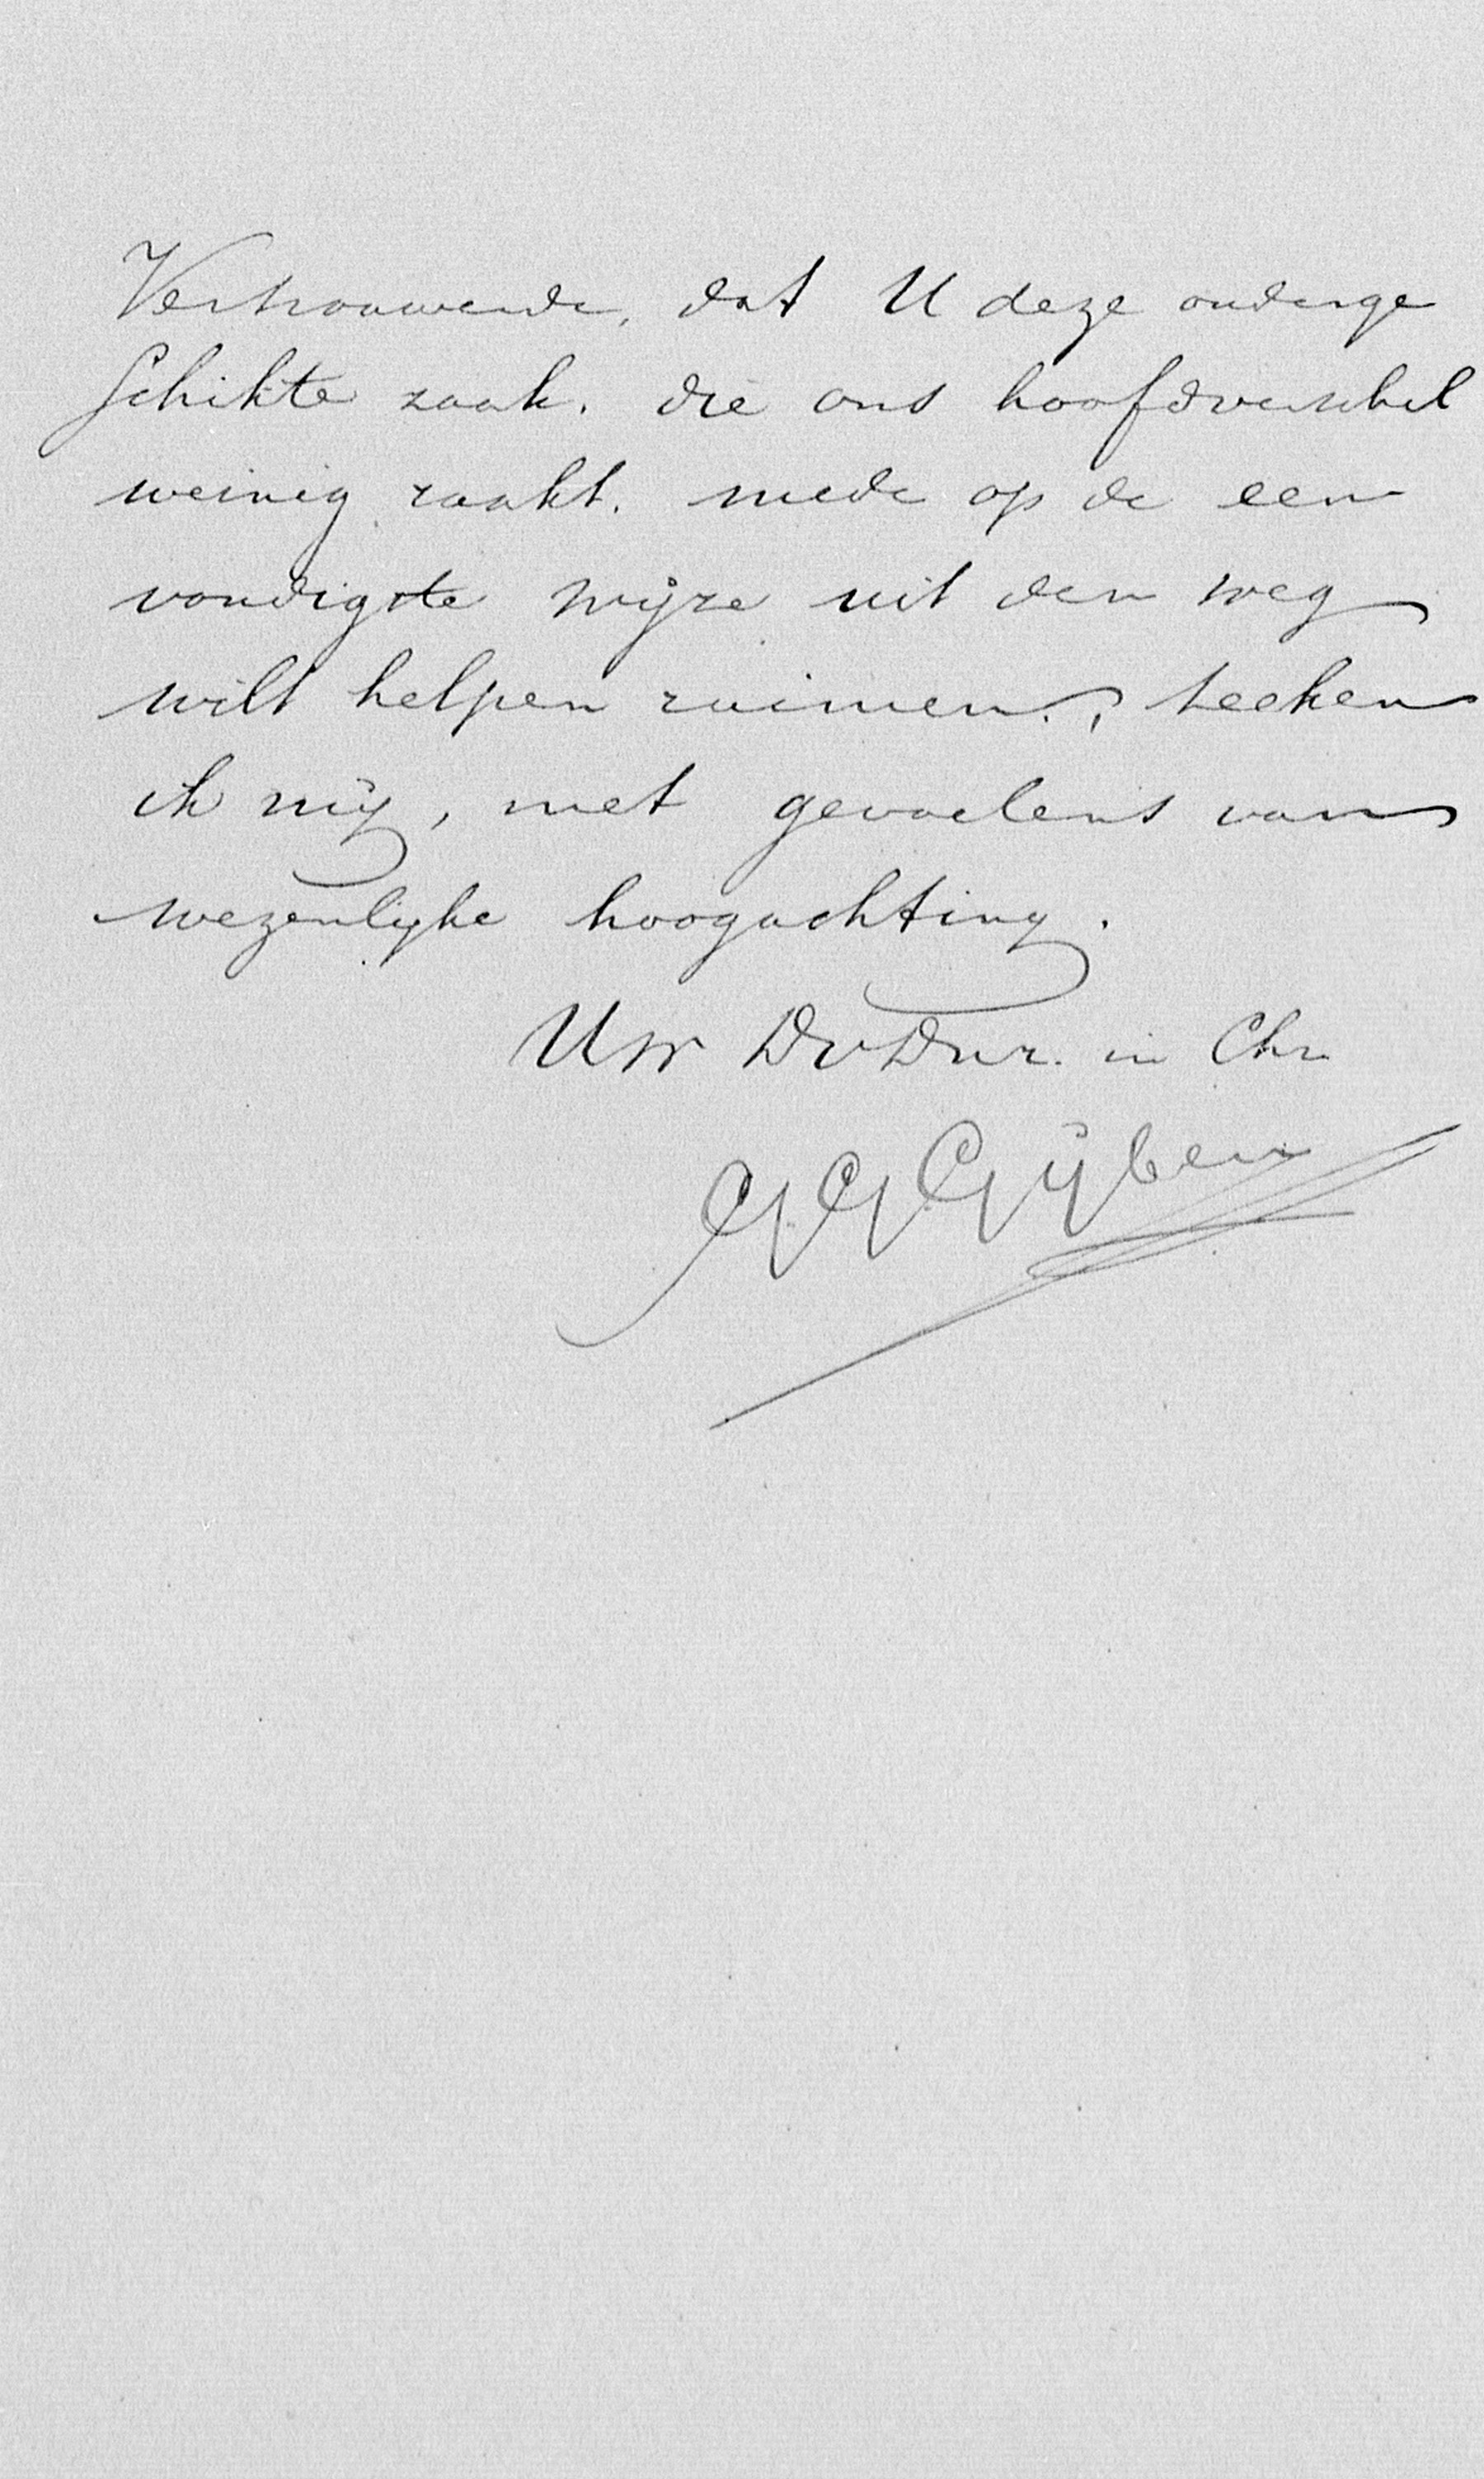 Vertrouwende, dat U deze onderge
schikte zaak, die ons hoofdverschil
weinig raakt, mede op de een
voudigste wijze uit den weg
wilt helpen ruimen, teeken
ik mij, met gevoelens van
wezenlijke hoogachting.
Uw DvDnr. in Chr
G. G. Gijben